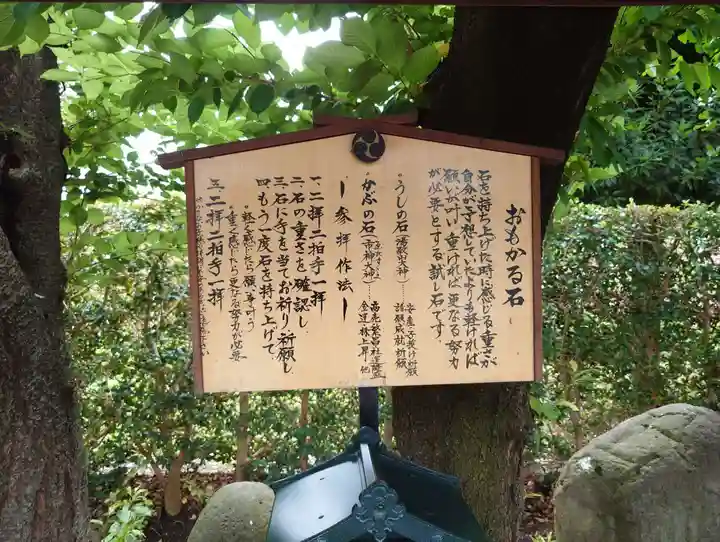 おもかる石
石を持ち上げた時に感じる重さが
自分が予想していたよりも軽ければ
願いが叶い、重ければ更なる努力
が必要とする試し石です。
"うしの石
安産・子授け祈願
諸願成就祈願
"かぶの石(市神大神)
商売繁昌・社運隆盛
金運・株上昇 他
ー参拝作法ー
一、二拝二拍手一拝
二、石の重さを確認し
三、石に手を当てお祈り、祈願し
四、もう一度石を持ち上げて
"軽く感じたら願い事叶う
"重く感じたら更なる努力が必要
五、二拝二拍手一拝